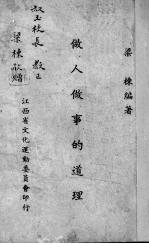 梁棟編著
做人做事的道理
江西省文化運動委員會印行
校長 教正
梁棟敬贈